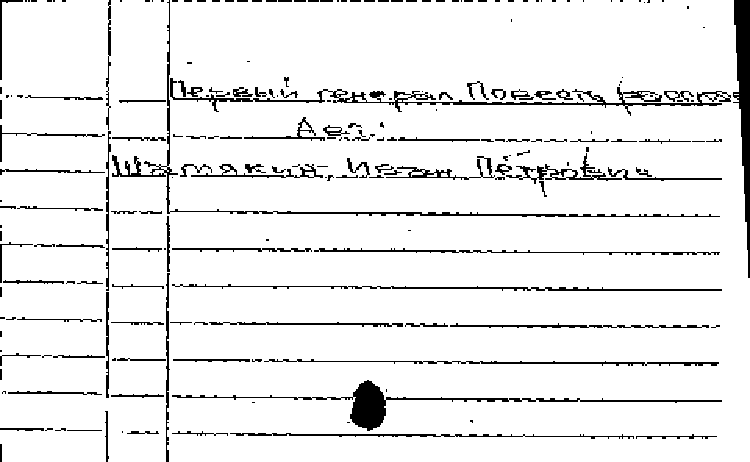 Первый генерал. Повесть
Авт.:
Шамякин, Иван Петрович